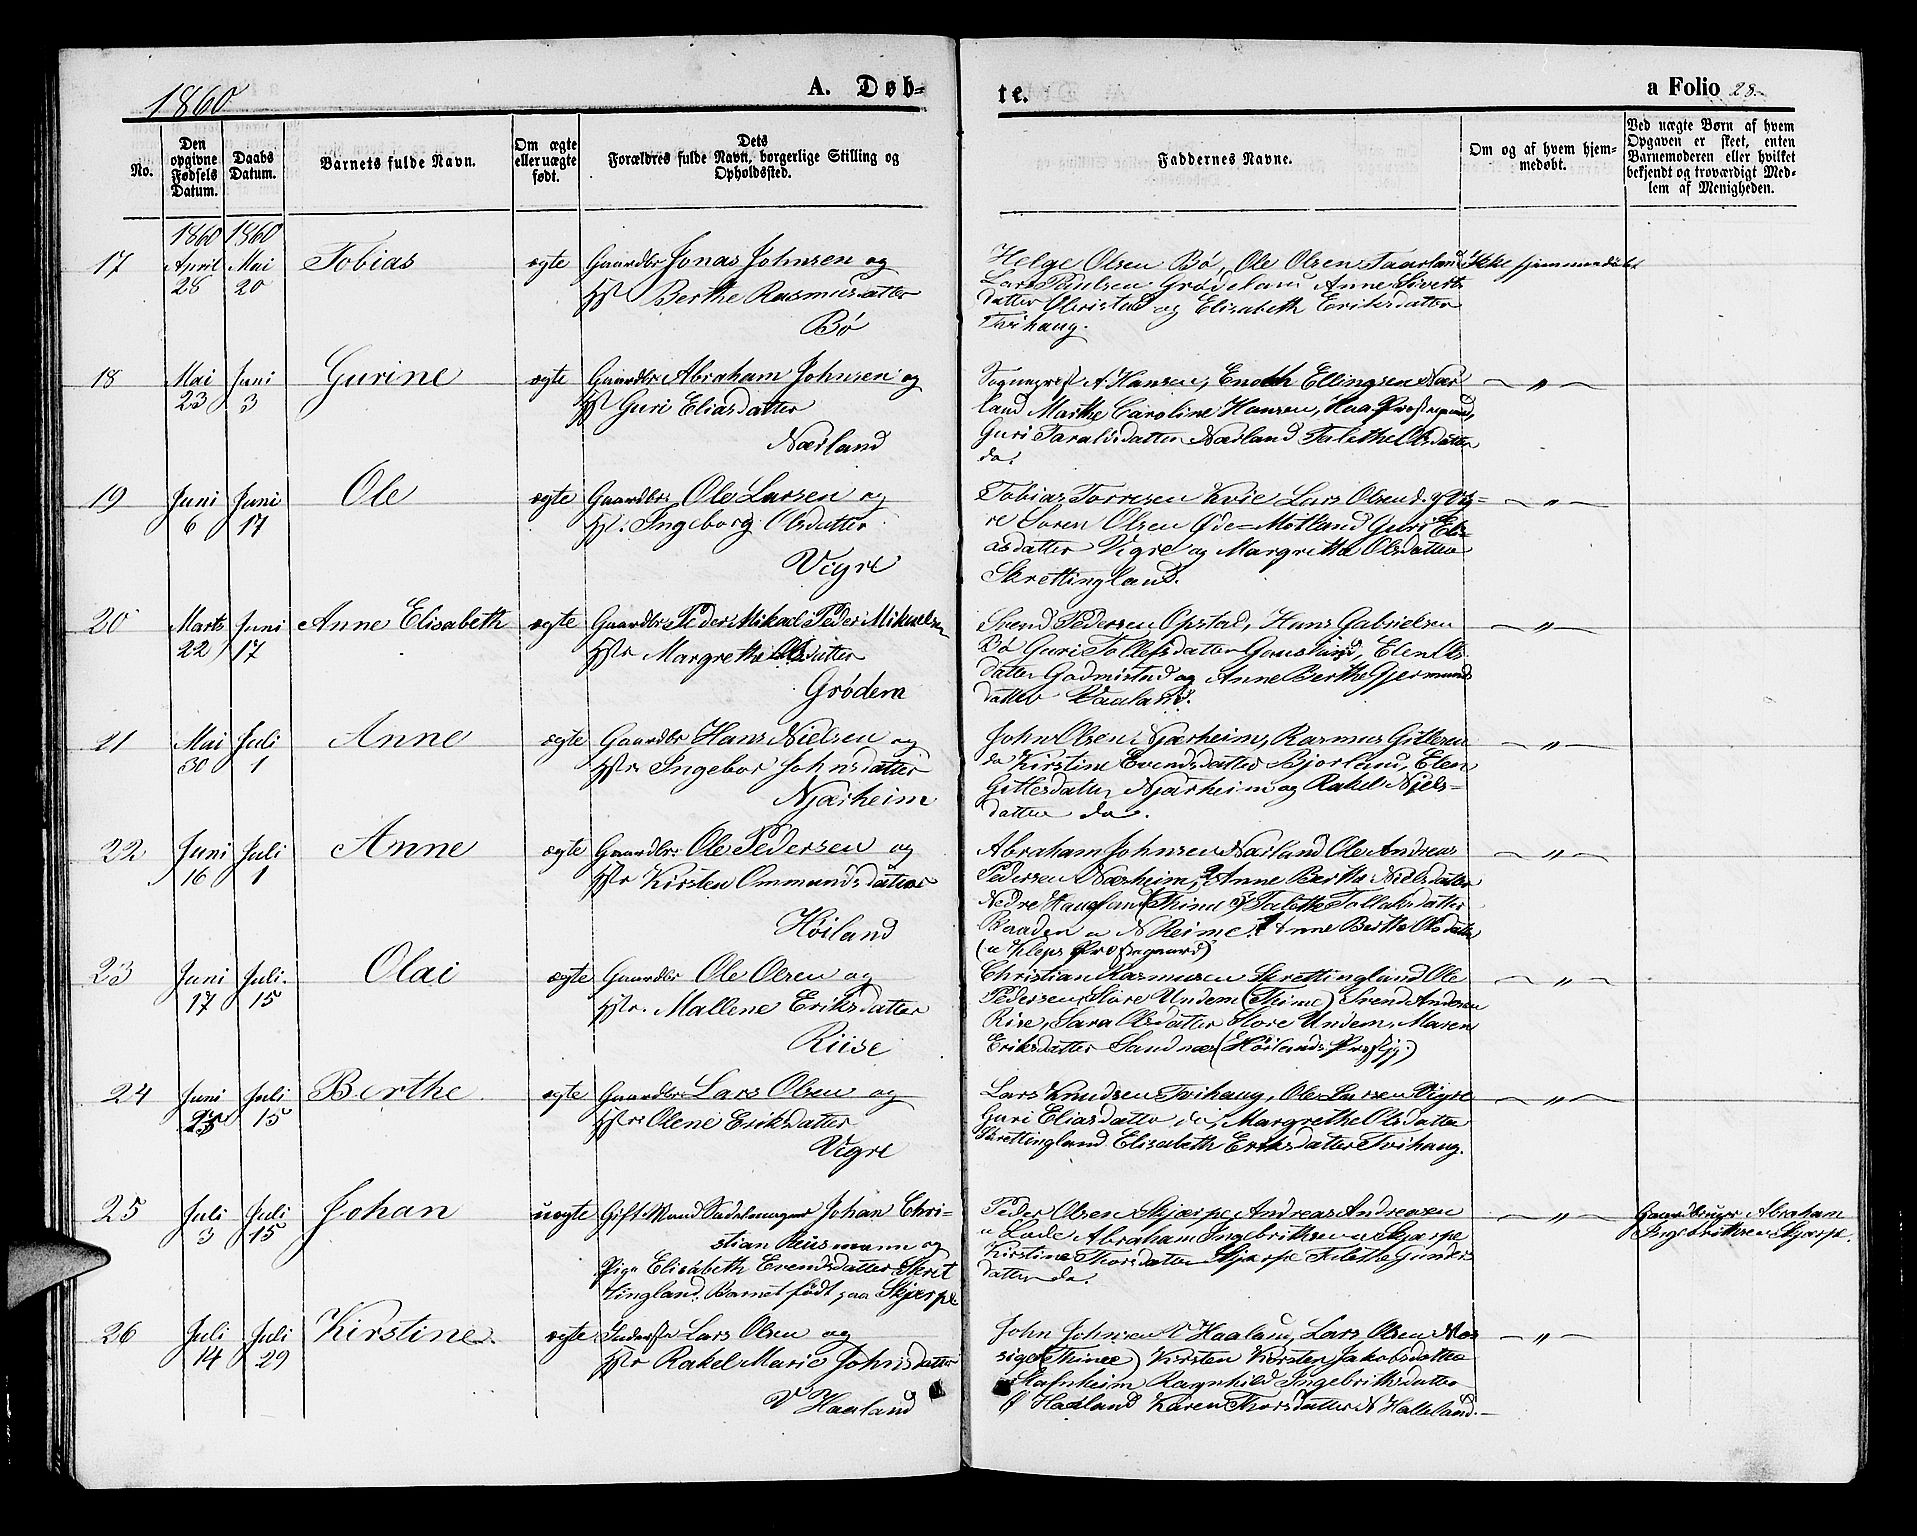 1860
A. Døb-
te.
a Folio 28.
No.
Den opgivne Fødsels Datum.
Daabs Datum.
Barnets fulde Navn.
Om ægte eller uægte født.
Dets Forældres fulde Navn, borgerlige Stilling og Opholdssted.
Faddernes Navne.
Om og af hvem hjemmedøbt.
Ved uægte Børn af hvem Opgaven er skeet, enten Barnemoderen eller hvilket bekjendt og troværdigt Medlem af Menigheden.
1860 1860
17 April 28 Mai 20 Tobias ægte Gaardbr Jonas Johnsen og
Hst Berthe Rasmusdatter
Bø
Helge Olsen Bø, Ole Olsen Taarland Ikke hjemmedøbt
Lars Paulsen Grødeland Anne Siverts
datter Obristad og Elisabeth Eriksdatter
Tvihaug.
18 Mai 23 Juni 3 Gurine ægte Gaardbr Abraham Johnsen og
Hst Guri Eliasdatter
Nærland
Sognepræst A. Hansen, Enoch Ellingsen Nær
land Marthe Caroline Hansen, Haa Præstegaard,
Guri Taraldsdatter Nærland Talethe Olsdatter
do.
– „ –
19 Juni 6 Juni 17 Ole ægte Gaardbr. Ole Larsen og
Hst. Ingeborg Olsdatter
Vigre
Tobias Torresen Kvie Lars Olsen d. y Vig=
re Søren Olsen Øde=Motland Guri Eli=
asdatter Vigre og Margrethe Olsdatter
Skrettingland.
– „ –
20 Marts 22 Juni 17 Anne Elisabeth ægte Gaardbr. Peder Mikael Peder Mikaelsen
Hstr Margrethe Olsdatter
Grødem
Svend Pedersen Opstad, Hans Gabrielsen
Bø Guri Tollefsdatter Gausland, Elen Ols
datter Godmistad og Anne Berthe Gjermunds
datter Vaaland.
– „ –
21 Mai 30 Juli 1 Anne ægte Gaardbr Hans Nielsen og
Hstr. Ingebor Johnsdatter
Njærheim
John Olsen Njærheim, Rasmus Gitlesen
do Kirstine Evendsdatter Bjorland, Elen
Gitlesdatter Njærheim og Rakel Njels=
datter do.
– „ –
22 Juni 16 Juli 1 Anne ægte Gaardbr: Ole Pedersen og
Hstr Kirsten Ommundsdatter
Høiland
Abraham Johnsen Nærland Ole Andreas
Pedersen Nærheim, Anne Berthe Nielsdatter
Nedre Haugland (Thime) Talethe Tollaksdatter
Braaden a N Reime. Anne Berthe Olsdatter
(a Kleps Præstegaard)
– „ –
23 Juni 17 Juli. 15 Olai ægte Gaardbr Ole Olsen og
Hstr. Mallene Eriksdatter
Riise
Christian Rasmusen Skrettingland Ole
Pedersen Store Undem (Thime) Svend Andersen
Rise, Sara Olsdatter Store Undem, Maren
Eriksdatter Sandnæs (Høilands Præstgj.)
– „ –
24 Juni Juli 15 Berthe ægte Gaardbr Lars Olsen og
Hstr: Olene Eriksdatter
Vigre
Lars Knudsen Tvihaug, Ole Larsen Vigre
Guri Eliasdatter do, Margrethe Olsdatter
Skrettingland Elisabeth Eriksdatter Tvihaug.
– „ –
25 Juli 3 Juli 15 Johan uægte Gift Mand Sadelmager Johan Chri–
stian Reusmann og
Pige Elisabeth Evendsdatter Skret
tingland. Barnet født paa Skjærpe
Peder Olsen Skjærpe Andreas Andreasen
a Lode Abraham Ingebrithsen a Skjærpe
Kirstine Thorsdatter Skjærpe Talethe Gunders
datter do.
– „ –
Gaardbruger Abraham
Ingebrithsen Skjærpe.
26 Juli 14 Juli 29 Kirstine ægte Inderste Lars Olsen og
Hstr Rakel Marie Johnsdatter
V Haaland
John Johnsen V Haaland, Lars Olsen Nor
sige (Thime) Kirsten Kirsten Jakobsdatter
Stafnheim Ragnhild Ingebrithsdatter
Haaland Karen Thorsdatter N Halleland.
– „ –